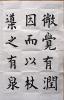 微覺有潤
因而以杖
導之有泉